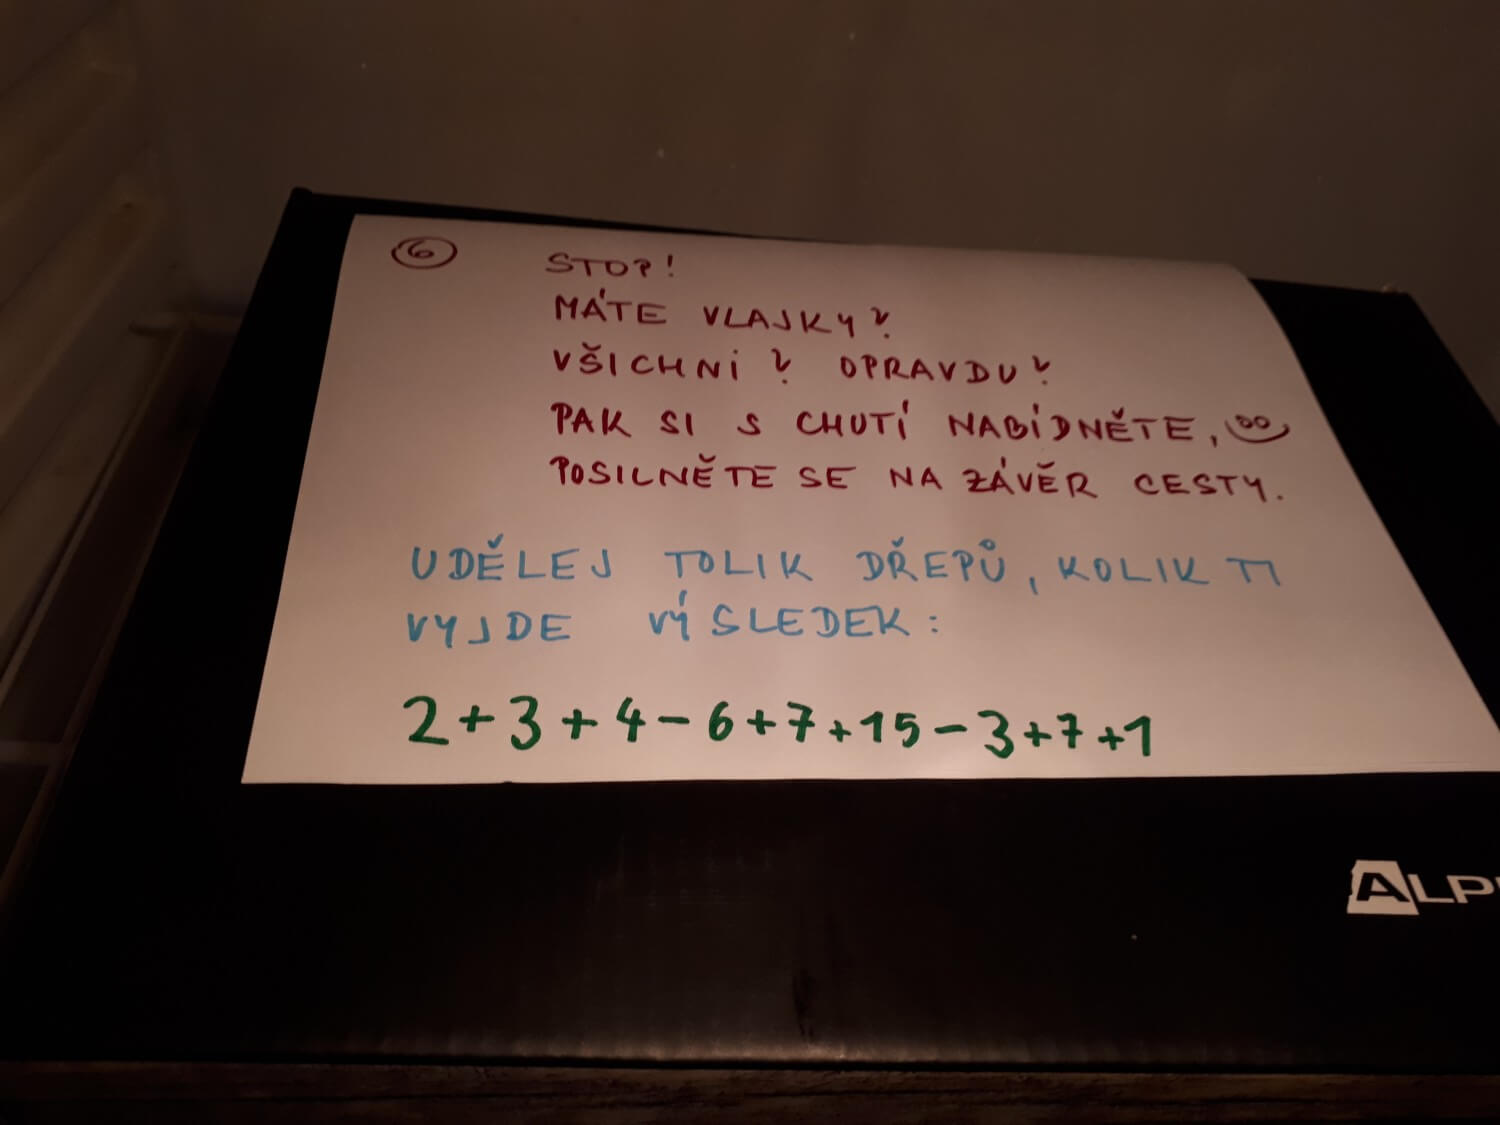 6
STOP!
MÁTE VLAJKY?
VŠICHNI? OPRAVDU?
PAK SI S CHUTÍ NABÍDNĚTE,
POSILNĚTE SE NA ZÁVĚR CESTY.
UDĚLEJ TOLIK DŘEPŮ, KOLIK TI
VYJDE VÝSLEDEK:
2+3+4-6+7+15-3+7+1